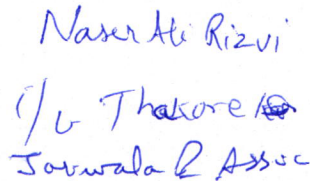 Naser Ali Rizvi
i/b Thakore
Jariwala & Assoc